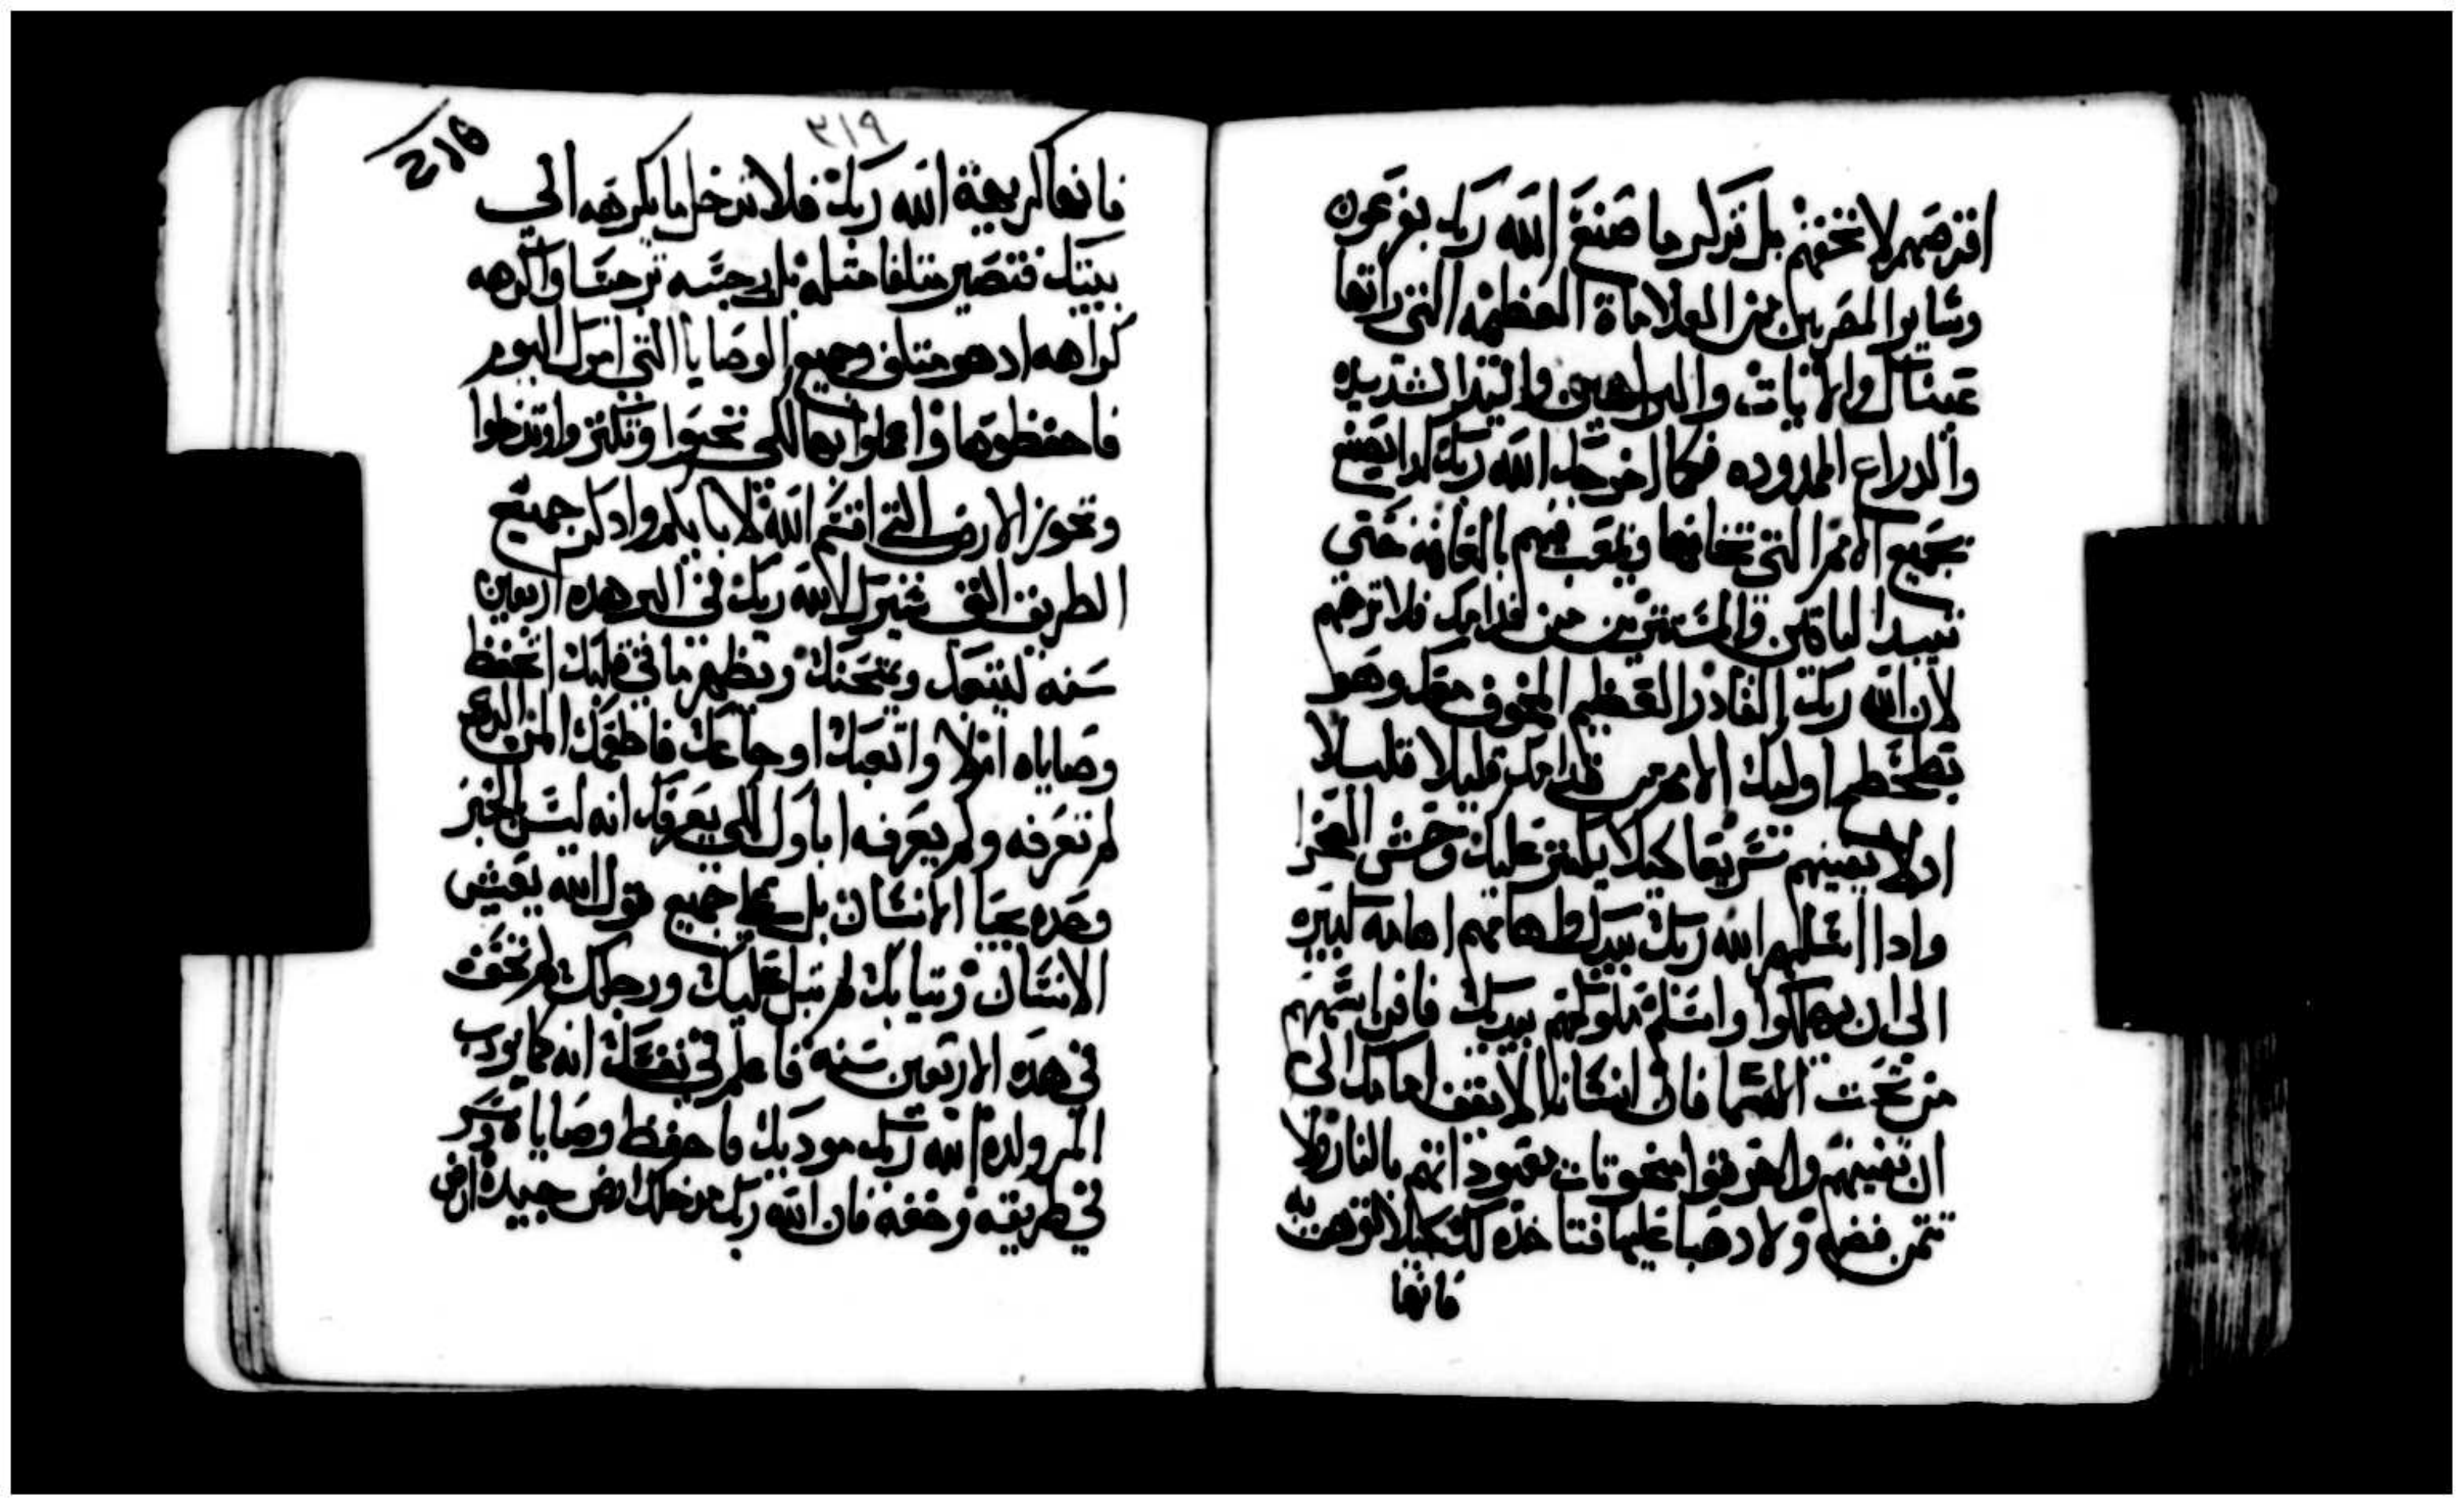 اقرضهم لا تخفهم بل تذكر ما صنع الله ربك بفرعون
وسايرا المصريين من العلاماة العظيمه التي راتها
عيناك والايات والبراهين واليد الشديده
والدراع الممدوده فكما اخرجك الله ربك كدا يصنع
بجميع الامم التي تخافها ويعقب منهم بالعاهه حتي
تبيد الباقين والمستترين من قدامك فلا ترهبهم
لان الله ربك القادر العظيم المخوف معك وهو
يطحطح اوليك الامم من قدامك قليلا قليلا
اد لا تفينهم سريعا كيلا يكثر عليك وحش الصحرا
وادا اسلمهم الله ربك بيدك واهامهم اهامه كبيره
الي ان يهلكوا واسلم ملوكهم بيديك فافن اسمهم
من تحت السما فان انسانا لا يقف امامك الي
ان تفنيهم واحرقوا منحوتات معبوداتهم بالنار ولا
تتمن فضه ولا دهبا عليها فتاخده لك كيلا توهق به
فانها
٣١٩
فانها كريهة الله ربك فلا تدخل ما يكرهه الي
بيتك فتصير متلفا مثله بل رجسه ترجسا واكرهه
كراهه اد هو متلف وجميع الوصايا التي امرك اليوم
فاحفظوها واعملوا بها لكي تحيوا وتكثروا وتدخلوا
وتحوز الارض التي اقسم الله لابايكم وادكر جميع
الطريق التي سيرك الله ربك في البر هده اربعين
سنه ليتعبك ويمتحنك ويظهر ما في قلبك اتحفظ
وصاياه ام لا واتعبك اوجاعك فاطعمك المن الدي
لم تعرفه ولم يعرفه اباوك لكي يعرفك انه ليس بالخبز
وحده يحيا الانسان بل بجميع قول الله يعيش
الانسان وتيابك لم تبل عليك ورجلك لم تحف
في هده الاربعين سنه فاعلم في نفسك انه كما يودب
المر ولده الله ربك مودبك فاحفظ وصاياه وسر
في طريقه وخفه فان الله ربك مدخلك ارض جيده ارض